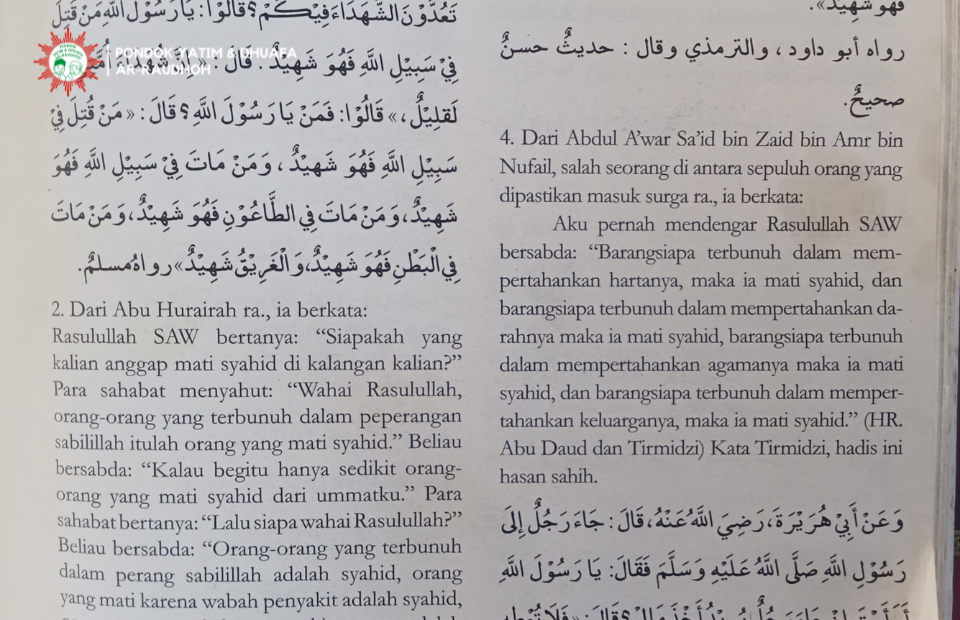 تَعُدُّوْنَ الشُّهَدَاءَ فِيْكُمْ؟ قَالُوْا: يَا رَسُوْلَ اللَّهِ مَنْ قُتِلَ
فِيْ سَبِيْلِ اللَّهِ فَهُوَ شَهِيْدٌ. قَالَ: «إِنَّ شُهَدَاءَ أُمَّتِيْ
لَقَلِيْلٌ»، قَالُوْا: فَمَنْ يَا رَسُوْلَ اللَّهِ؟ قَالَ: «مَنْ قُتِلَ فِيْ
سَبِيْلِ اللَّهِ فَهُوَ شَهِيْدٌ، وَمَنْ مَاتَ فِيْ سَبِيْلِ اللَّهِ فَهُوَ
شَهِيْدٌ، وَمَنْ مَاتَ فِي الطَّاعُوْنِ فَهُوَ شَهِيْدٌ، وَمَنْ مَاتَ
فِي الْبَطْنِ فَهُوَ شَهِيْدٌ، وَالْغَرِيْقُ شَهِيْدٌ» رواه مسلم.
2. Dari Abu Hurairah ra., ia berkata:
Rasulullah SAW bertanya: “Siapakah yang
kalian anggap mati syahid di kalangan kalian?”
Para sahabat menyahut: “Wahai Rasulullah,
orang-orang yang terbunuh dalam peperangan
sabilillah itulah orang yang mati syahid.” Beliau
bersabda: “Kalau begitu hanya sedikit orang-
orang yang mati syahid dari ummatku.” Para
sahabat bertanya: “Lalu siapa wahai Rasulullah?”
Beliau bersabda: “Orang-orang yang terbunuh
dalam perang sabilillah adalah syahid, orang
yang mati karena wabah penyakit adalah syahid,
فهو شهيد».
رواه أبو داود، والترمذي وقال: حديثٌ حسنٌ
صحيحٌ.
4. Dari Abdul A’war Sa’id bin Zaid bin Amr bin
Nufail, salah seorang di antara sepuluh orang yang
dipastikan masuk surga ra., ia berkata:
Aku pernah mendengar Rasulullah SAW
bersabda: “Barangsiapa terbunuh dalam mem-
pertahankan hartanya, maka ia mati syahid, dan
barangsiapa terbunuh dalam mempertahankan da-
rahnya maka ia mati syahid, barangsiapa terbunuh
dalam mempertahankan agamanya maka ia mati
syahid, dan barangsiapa terbunuh dalam memper-
tahankan keluarganya, maka ia mati syahid.” (HR.
Abu Daud dan Tirmidzi) Kata Tirmidzi, hadis ini
hasan sahih.
وَعَنْ أَبِيْ هُرَيْرَةَ، رَضِيَ اللَّهُ عَنْهُ، قَالَ: جَاءَ رَجُلٌ إِلَى
رَسُوْلِ اللَّهِ صَلَّى اللَّهُ عَلَيْهِ وَسَلَّمَ فَقَالَ: يَا رَسُوْلَ اللَّهِ
PONDOK YATIM & DHUAFA
AR-RAUDHOH